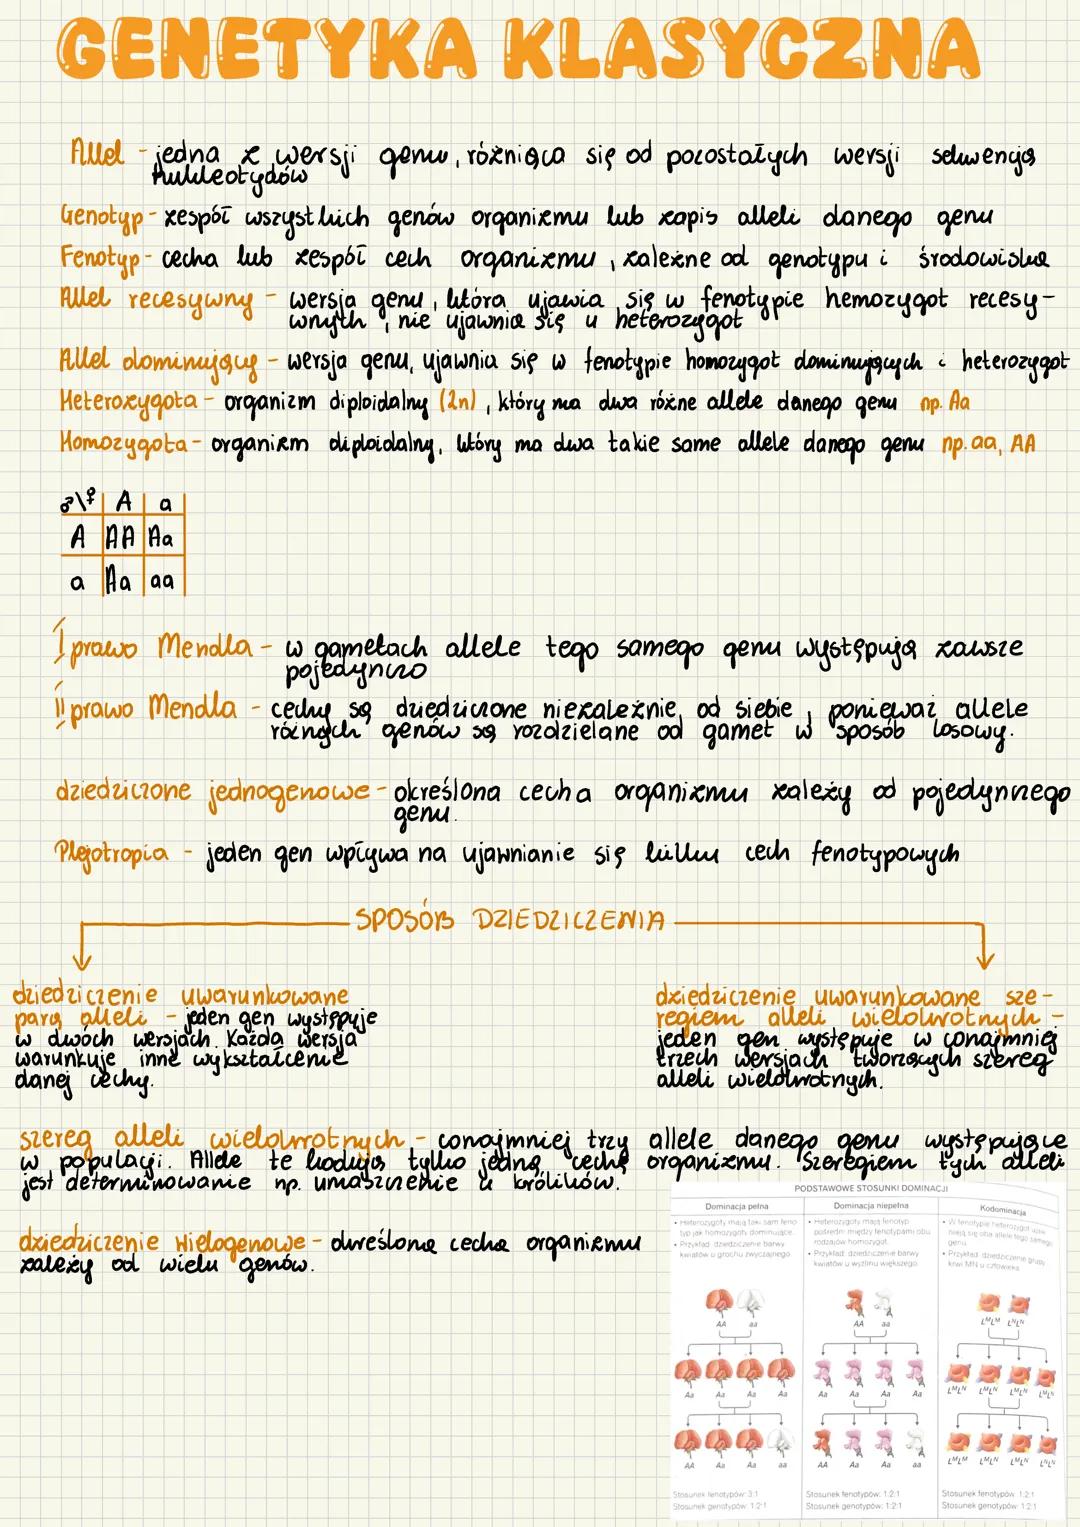 GENETYKA KLASYCZNA
Allel - jedna z wersji genu, różniąca się od pozostałych wersji sekwencją
nukleotydów
Genotyp - zespół wszystkich genów organizmu lub zapis alleli danego genu
Fenotyp - cecha lub zespół cech organizmu, zależne od genotypu i środowiska
Allel recesywny - wersja genu, która ujawia się w fenotypie hemozygot recesy-
wnyth, nie ujawnia się u heterozygot
Allel dominujący - wersja genu, ujawnia się w fenotypie homozygot dominujących i heterozygot
Heterozygota - organizm diploidalny (2n), który ma dwa różne allele danego genu np. Aa
Homozygota - organizm diploidalny, który ma dwa takie same allele danego genu np. aa, AA
♂\♀ A a
A AA Aa
a Aa aa
I prawo Mendla - w gametach allele tego samego genu występują zawsze
pojedynczo
II prawo Mendla - cechy są dziedziczone niezależnie od siebie, ponieważ allele
różnych genów są rozdzielane od gamet w sposób losowy.
dziedziczone jednogenowe - określona cecha organizmu zależy od pojedynczego
genu.
Plejotropia - jeden gen wpływa na ujawnianie się kilku cech fenotypowych
SPOSÓB DZIEDZICZENIA
dziedziczenie uwarunkowane
parą alleli - jeden gen występuje
w dwóch wersjach. Każda wersja
warunkuje inne wykształcenie
danej cechy.
dziedziczenie uwarunkowane sze-
regiem alleli wielokrotnych -
jeden gen występuje w conajmniej
trzech wersjach tworzących szereg
alleli wielokrotnych.
szereg alleli wielokrotnych - conajmniej trzy allele danego genu występujące
w populacji. Allele te kodują tylko jedną cechę organizmu. Szeregiem tych alleli
jest determinowanie np. umaszczenie u królików.
dziedziczenie wielogenowe - określona cecha organizmu
zależy od wielu genów.
PODSTAWOWE STOSUNKI DOMINACJI
Dominacja pełna
• Heterozygoty mają taki sam feno
typ jak homozygoty dominujące.
• Przykład: dziedziczenie barwy
kwiatów u grochu zwyczajnego.
AA aa
Aa Aa Aa Aa
AA Aa Aa aa
Stosunek fenotypów: 3:1
Stosunek genotypów: 1:2:1
Dominacja niepełna
• Heterozygoty mają fenotyp
pośredni między fenotypami obu
rodzajów homozygot.
• Przykład: dziedziczenie barwy
kwiatów u wyżlinu większego.
AA aa
Aa Aa Aa Aa
AA Aa Aa aa
Stosunek fenotypów: 1:2:1
Stosunek genotypów: 1:2:1
Kodominacja
• W fenotypie heterozygot ujaw
niają się oba allele tego samego
genu.
• Przykład: dziedziczenie grupy
krwi MN u człowieka.
LᴹLᴹ LᴺLᴺ
LᴹLᴺ LᴹLᴺ LᴹLᴺ LᴹLᴺ
LᴹLᴹ LᴹLᴺ LᴹLᴺ LᴺLᴺ
Stosunek fenotypów: 1:2:1
Stosunek genotypów: 1:2:1